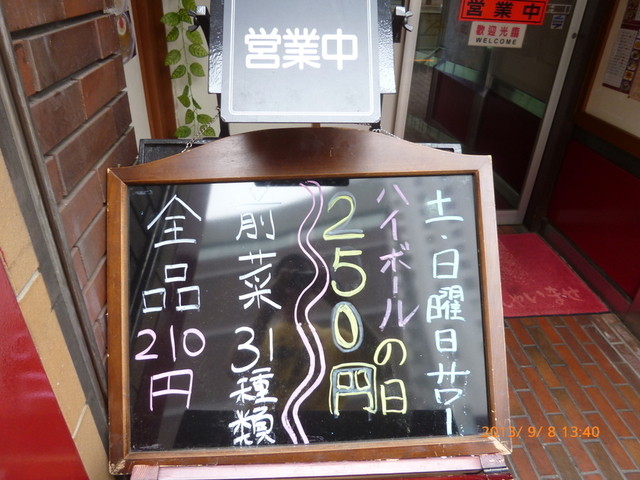 営業中
営業中
歓迎光臨
WELCOME
土・日曜日サワー
ハイボールの日
250円
前菜31種類
全品210円
っしゃいませ
2013/ 9/ 8 13:40